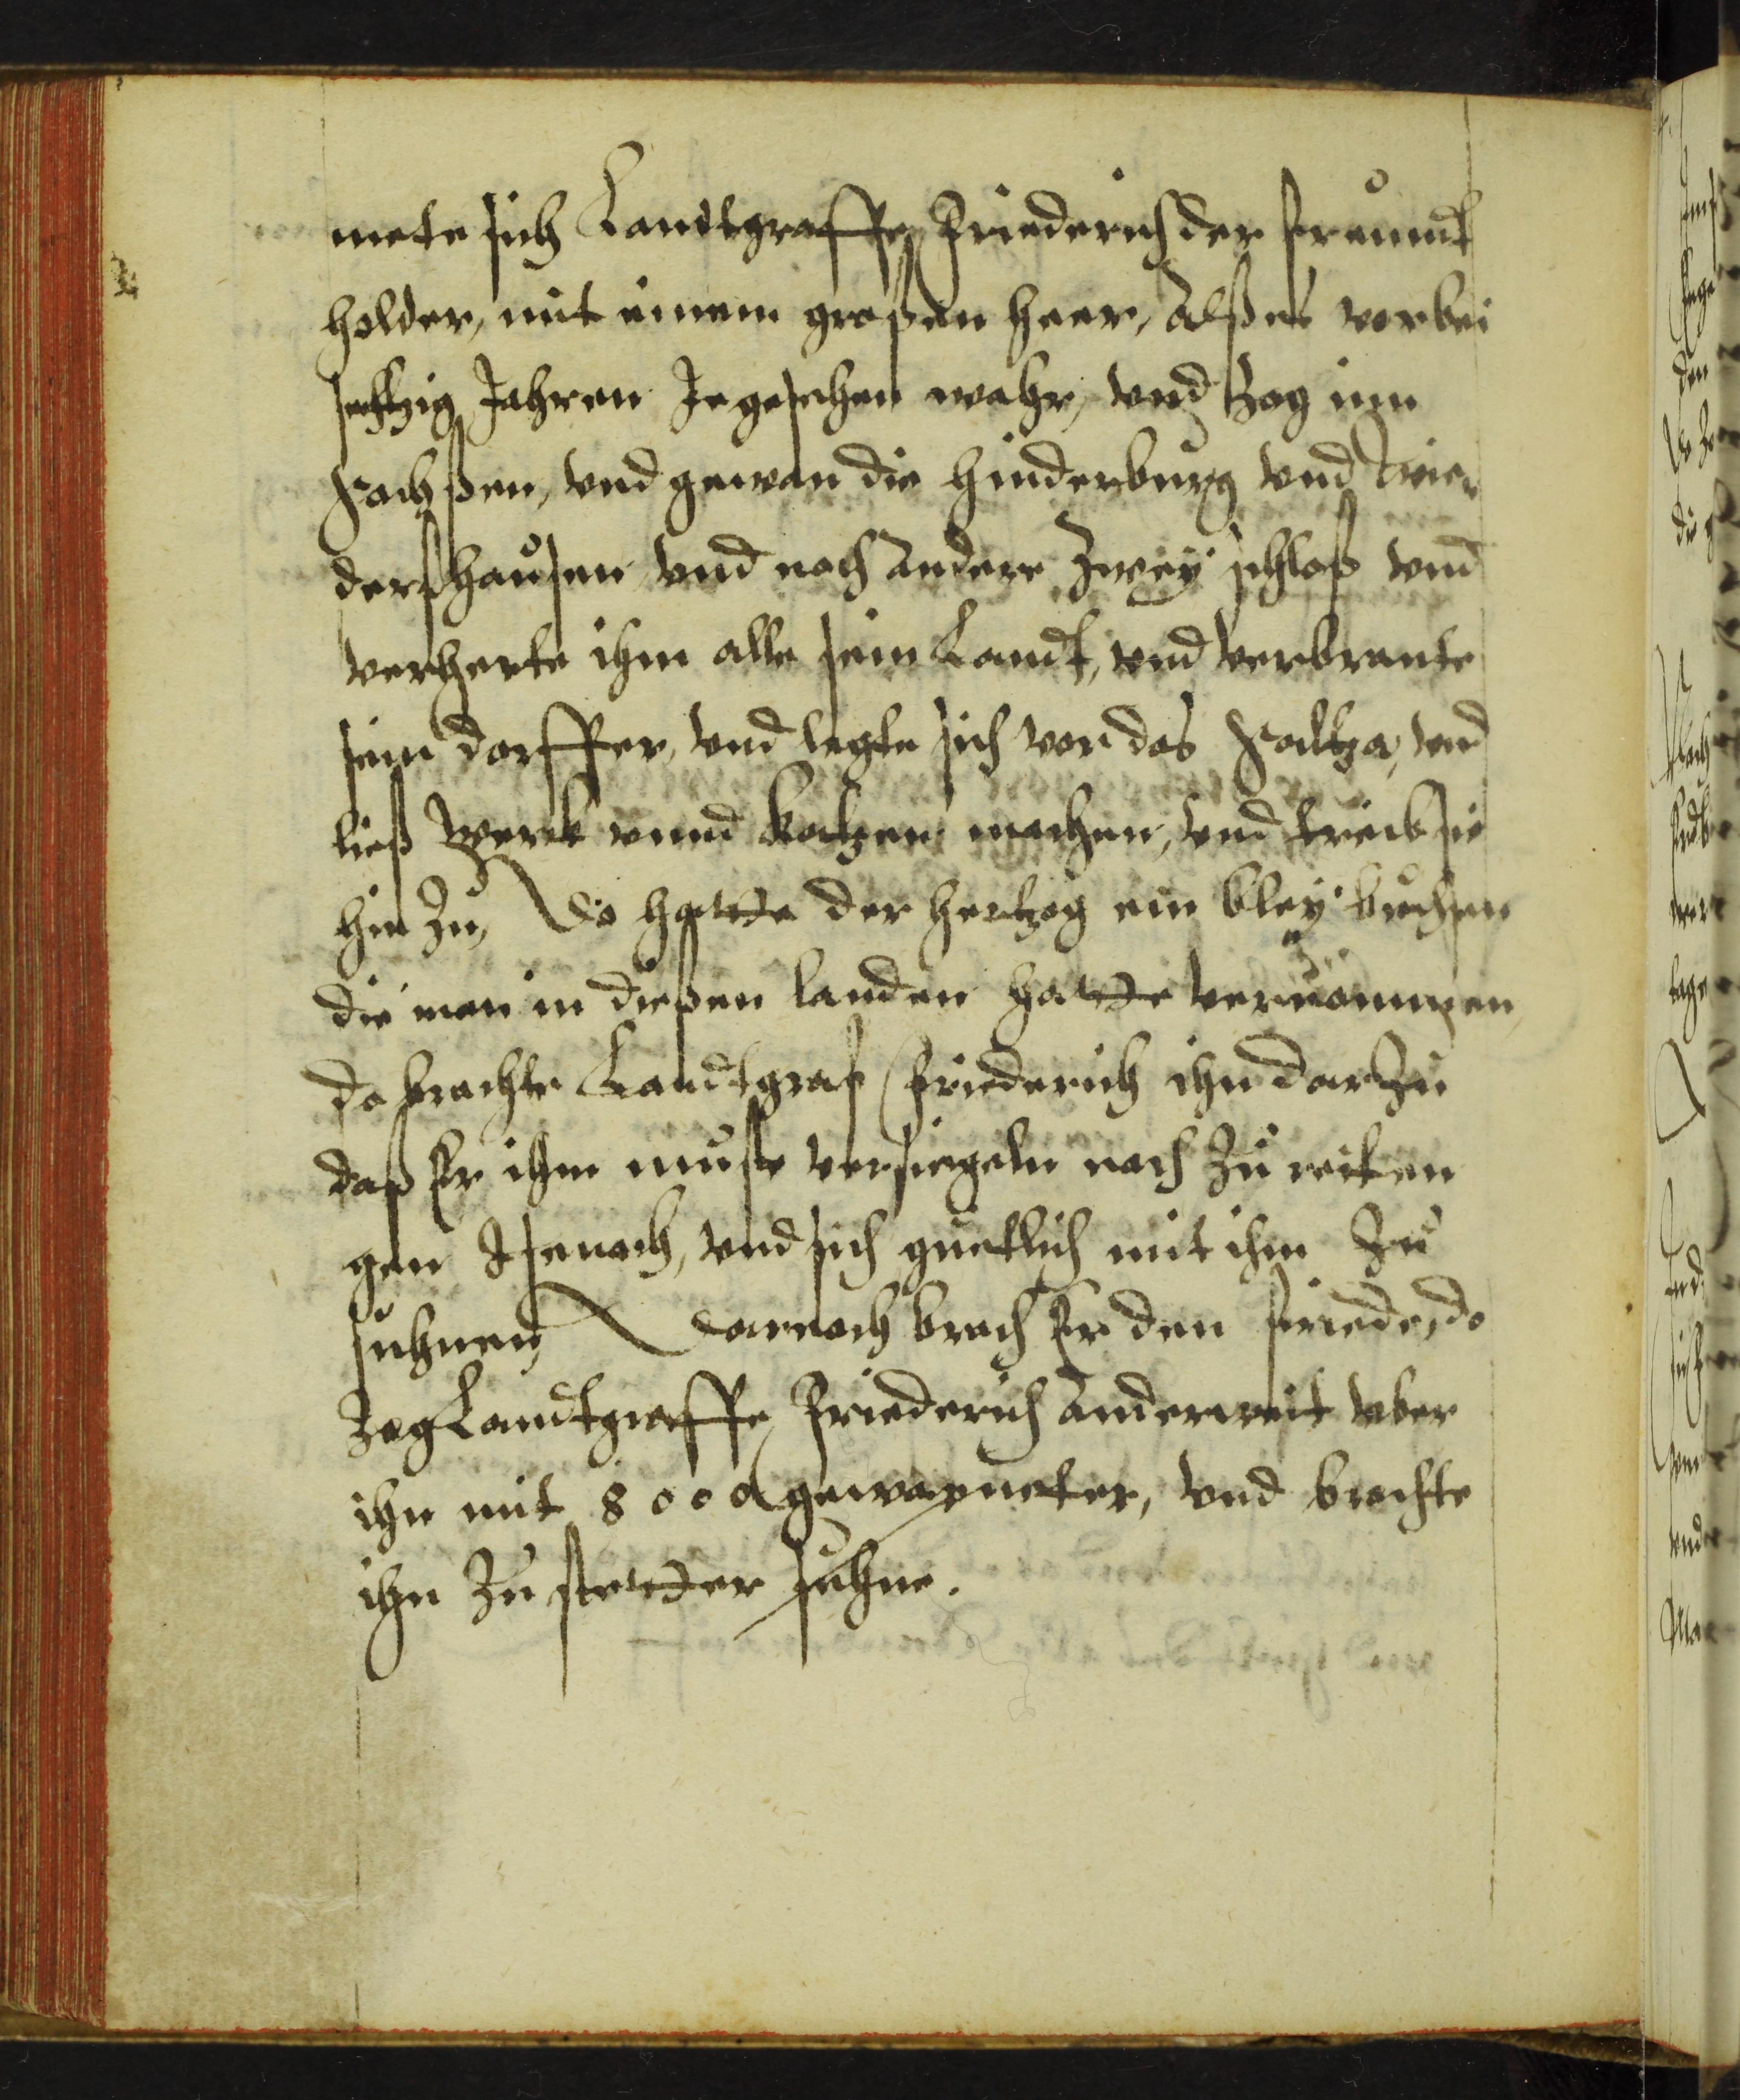 mete sich Landtgraffe Friederich der freundt
holder, mit einem großen heer, Alß es vorbei
sechzig Jahren Jegesehen wahr, vnd zog inn
Sachßen, vnd gewan die hinderburg vnd Win
dershausen vnd noch andere Zweÿ schloß vnd
verherte ihm alle sein Landt, vnd verbrante
sein dorffer, vnd legte sich vor das Saltza, vnd
ließ Werck vnnd Katzen machen, vnd treib sie
hin Zu, Do hatte der hertzog ein bleÿ buchsen
die man in dießen landen hatte vernommen,
do brachte Landtgraf Friederich ihn dar Zu
daß Er ihm muste versiegeln nach Zu reiten
gen Isenach, vnd sich guetlich mit ihm Zu
suhnen, Darnach brach Er den friede, do
Zog Landtgraffe Friederich anderweit vber
ihn mit 8000 gewapneter, vnd brachte
ihn Zu stetter suhne.